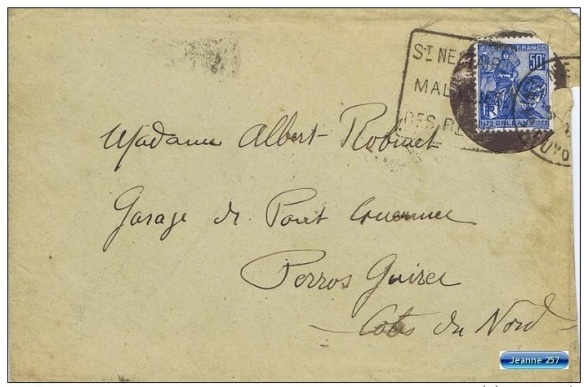 ST NE
MAL
DES R
FRANCE
50c
RF
ORLEANS
Madame Albert Robinet
Garage de Pont
Perros Guirec
Cotes du Nord
Jeanne 257